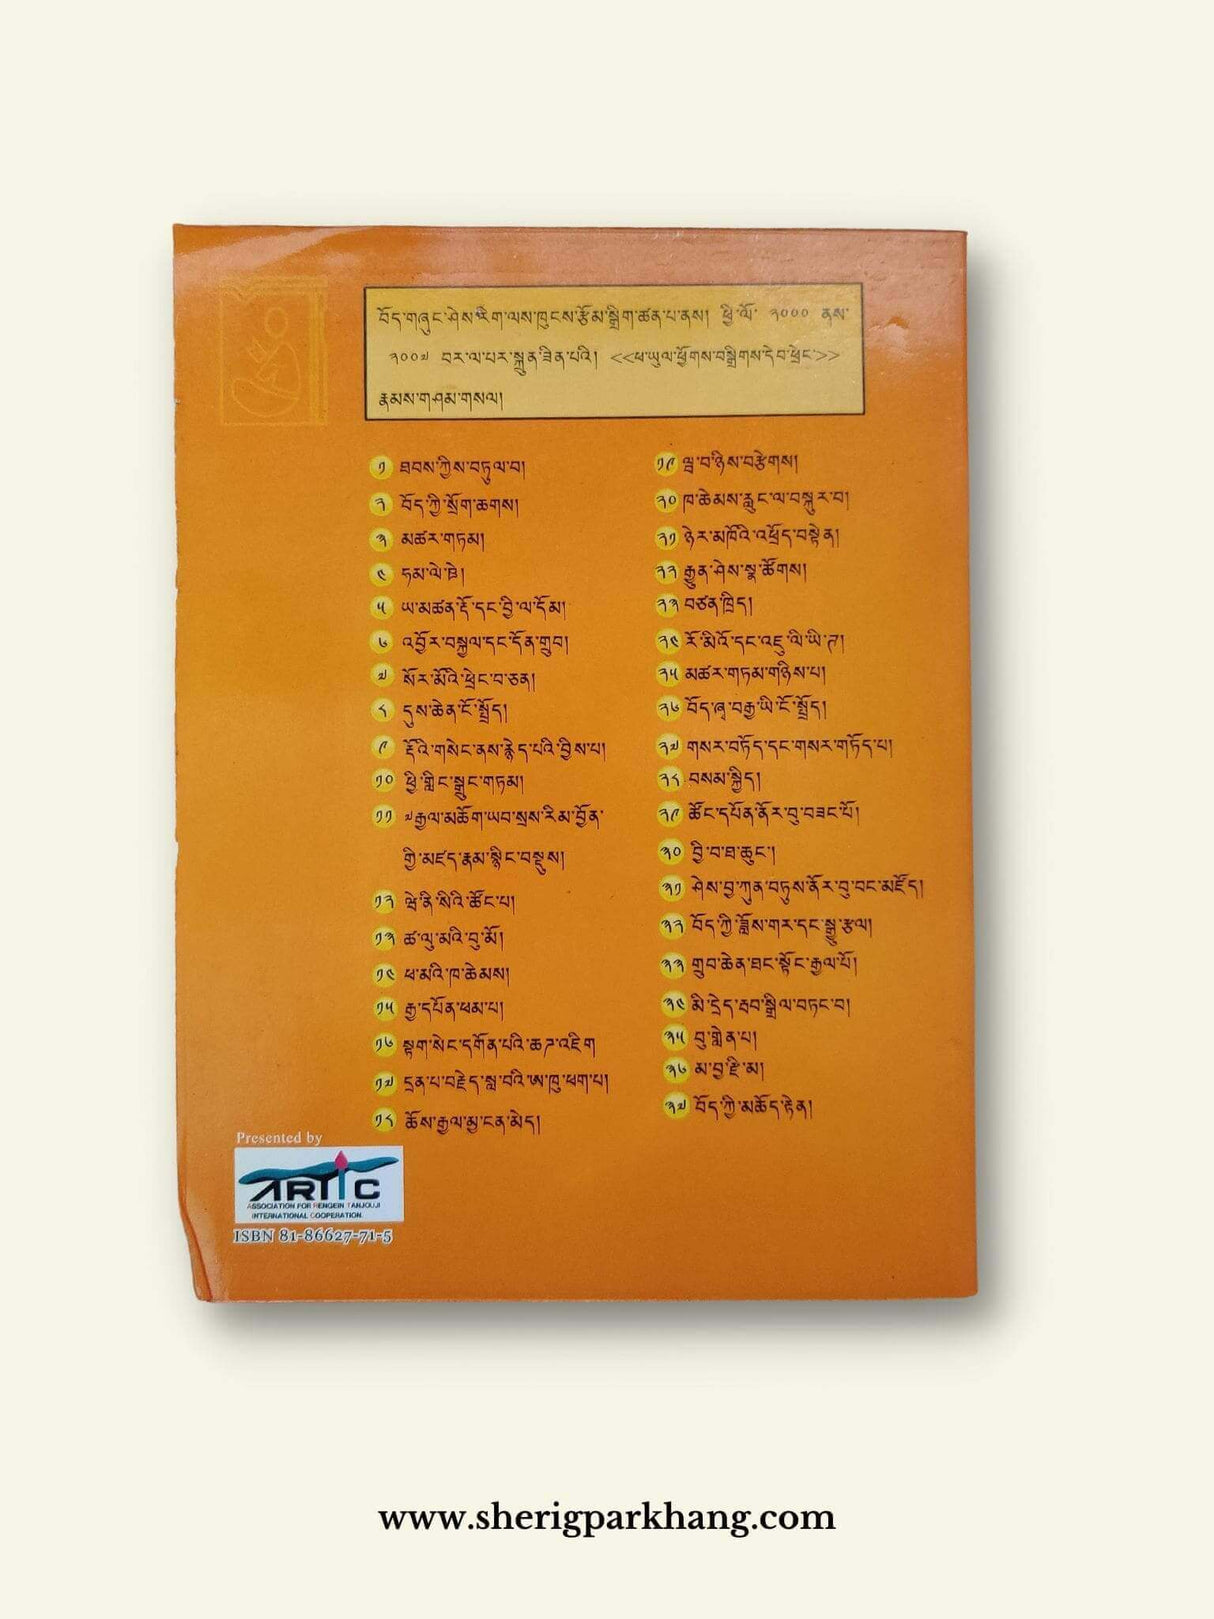 བོད་གཞུང་ཤེས་རིག་ལས་ཁུངས་རྩོམ་སྒྲིག་ཚན་པ་ནས། ཕྱི་ལོ་ ༢༠༠༠ ནས་
༢༠༠༧ བར་ལ་པར་སྐྲུན་ཟིན་པའི། <<ཕ་ཡུལ་ཕྱོགས་བསྒྲིགས་དེབ་ཕྲེང་>>
རྣམས་གཤམ་གསལ།
༡ ཐབས་ཀྱིས་བཏུལ་བ།
༢ བོད་ཀྱི་སྲོག་ཆགས།
༣ མཚར་གཏམ།
༤ ཧམ་ལེ་ཊེ།
༥ ཡ་མཚན་རྡོ་དང་བྱི་ལ་དོམ།
༦ འབྱོར་བསྐྱལ་དང་དོན་གྲུབ།
༧ སོར་མོའི་ཕྲེང་བ་ཅན།
༨ དུས་ཆེན་ངོ་སྤྲོད།
༩ རྡོའི་གསེང་ནས་རྙེད་པའི་བྱིས་པ།
༡༠ ཕྱི་གླིང་སྒྲུང་གཏམ།
༡༡ ༧རྒྱལ་མཆོག་ཡབ་སྲས་རིམ་བྱོན་
གྱི་མཛད་རྣམ་སྙིང་བསྡུས།
༡༢ ཝེ་ནི་སིའི་ཚོང་པ།
༡༣ ཚ་ལུ་མའི་བུ་མོ།
༡༤ ཕ་མའི་ཁ་ཆེམས།
༡༥ རྒྱ་དཔོན་ཕམ་པ།
༡༦ སྟག་སེང་དགོན་པའི་ཆཊ་འཇིག
༡༧ དྲན་པ་བརྗེད་སླ་བའི་ཨ་ཁུ་ཕག་པ།
༡༨ ཆོས་རྒྱལ་མྱ་ངན་མེད།
༡༩ ལྦ་བ་ཉིས་བརྩེགས།
༢༠ ཁ་ཆེམས་རླུང་ལ་བསྐུར་བ།
༢༡ ཉེར་མཁོའི་འཕྲོད་བསྟེན།
༢༢ རྒྱུན་ཤེས་སྣ་ཚོགས།
༢༣ བཙན་ཁྲིད།
༢༤ རོ་མིའོ་དང་འཇུ་ལི་ཡི་ཊ།
༢༥ མཚར་གཏམ་གཉིས་པ།
༢༦ བོད་ཞྭ་བརྒྱ་ཡི་ངོ་སྤྲོད།
༢༧ གསར་བཏོད་དང་གསར་གཏོད་པ།
༢༨ བསམ་སྐྱིད།
༢༩ ཚོང་དཔོན་ནོར་བུ་བཟང་པོ།
༣༠ བྱི་བ་ཐ་ཆུང་།
༣༡ ཤེས་བྱ་ཀུན་བཏུས་ནོར་བུ་བང་མཛོད།
༣༢ བོད་ཀྱི་ཟློས་གར་དང་སྒྱུ་རྩལ།
༣༣ གྲུབ་ཆེན་ཐང་སྟོང་རྒྱལ་པོ།
༣༤ མི་དྲེད་རྦབ་སྒྲིལ་བཏང་བ།
༣༥ བུ་གླེན་པ།
༣༦ མ་བྱ་རྫི་མ།
༣༧ བོད་ཀྱི་མཆོད་རྟེན།
Presented by
ARTIC
ASSOCIATION FOR RENGEIN TANJOUJI
INTERNATIONAL COOPERATION.
ISBN 81-86627-71-5
www.sherigparkhang.com